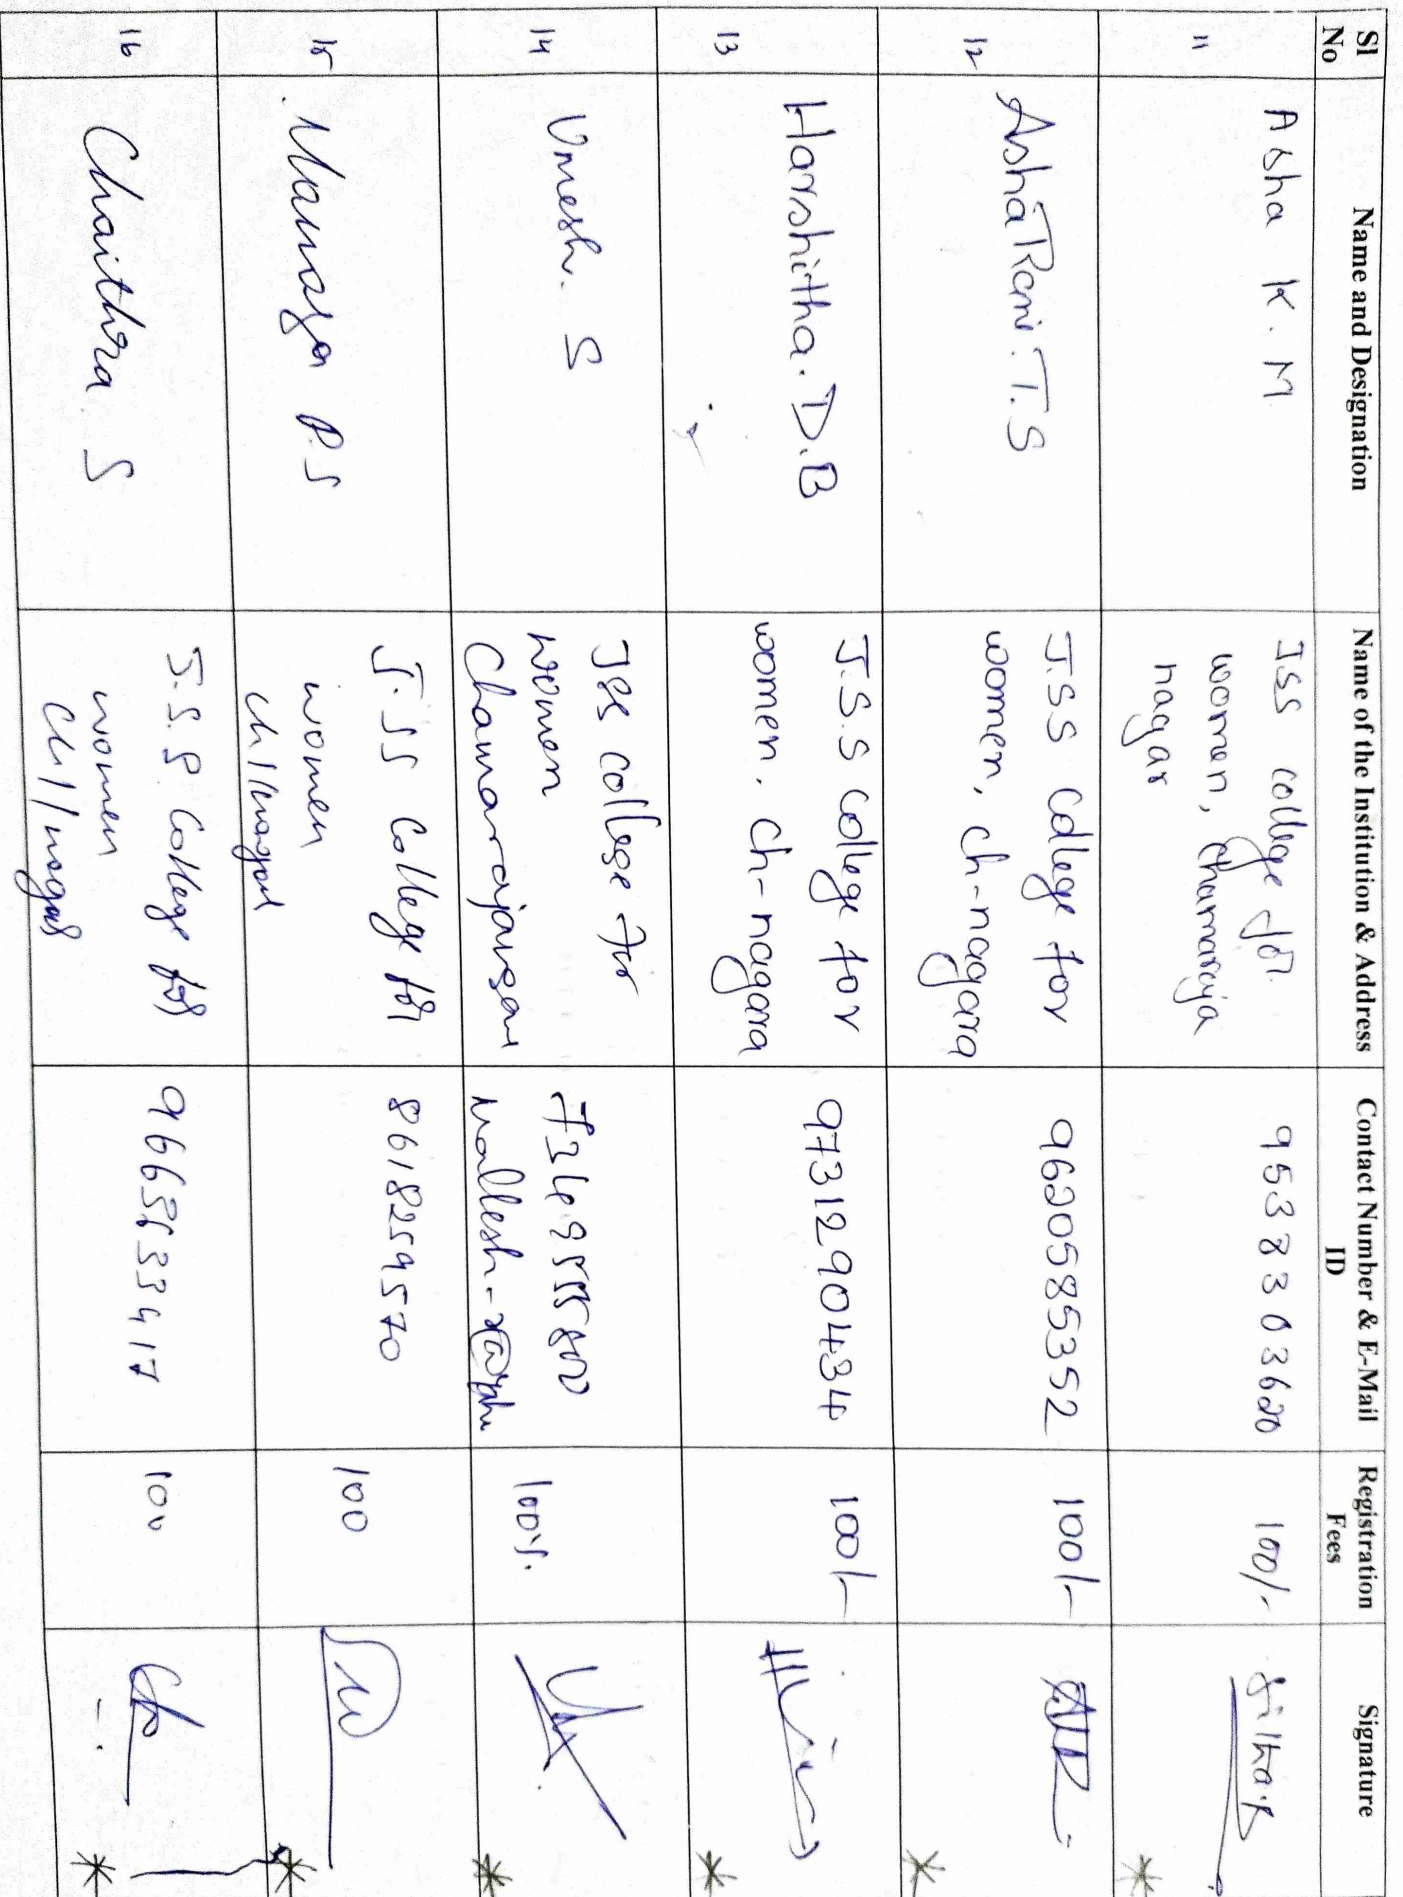 Sl No Name and Designation Name of the Institution & Address Contact Number & E-Mail ID Registration Fees Signature
11 Asha K. M JSS college for women, chamaraja nagar 9538303620 100/-
12 AshaRani. T. S J.SS College for women, ch-nagara 9620585352 100/-
13 Harshitha. D.B J.S.S College for women. ch-nagara 9731290434 100/-
14 Umesh. S JSS College for women 100
15 P.S J.SS College for women 8618259570 100
16 Chaithra S J.S.S College for women 100